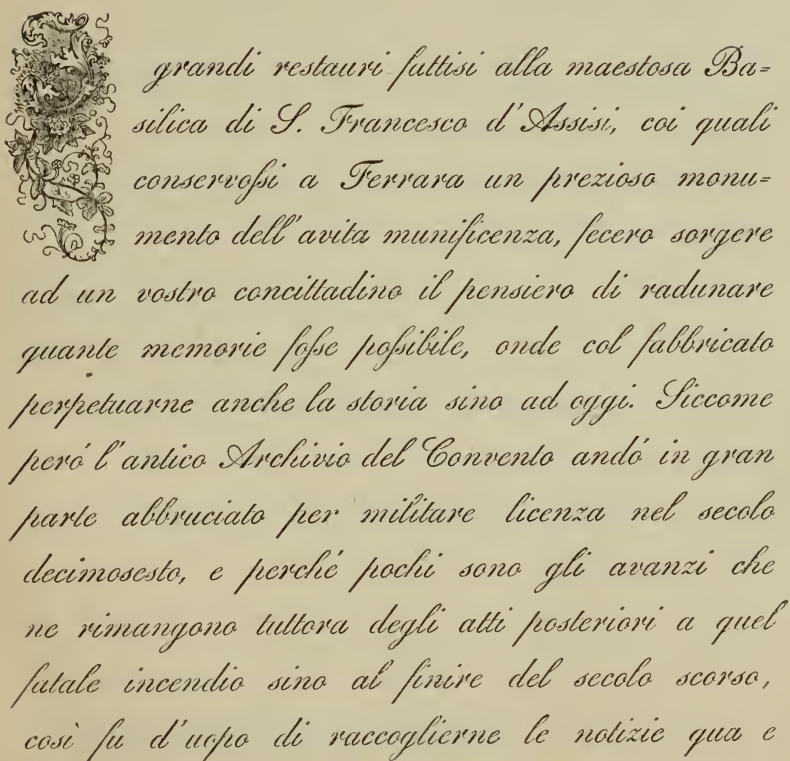 I grandi restauri fattisi alla maestosa Ba=
silica di S. Francesco d'Assisi, coi quali
conservossi a Ferrara un prezioso monu=
mento dell'avita munificenza, fecero sorgere
ad un vostro concittadino il pensiero di radunare
quante memorie fosse possibile, onde col fabbricato
perpetuarne anche la storia sino ad oggi. Siccome
peró l'antico Archivio del Convento andó in gran
parte abbruciato per militare licenza nel secolo
decimosesto, e perché pochi sono gli avanzi che
ne rimangono tuttora degli atti posteriori a quel
fatale incendio sino al finire del secolo scorso,
così fu d'uopo di raccoglierne le notizie qua e